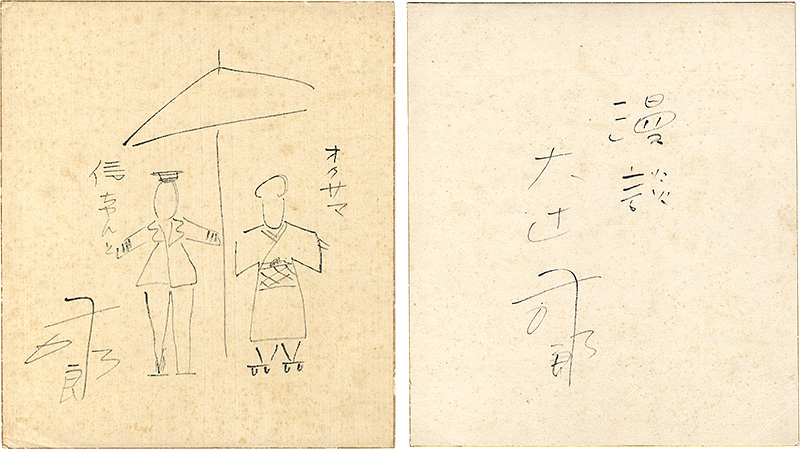 オクサマ
信ちゃんと
司郎
漫談
大辻司郎